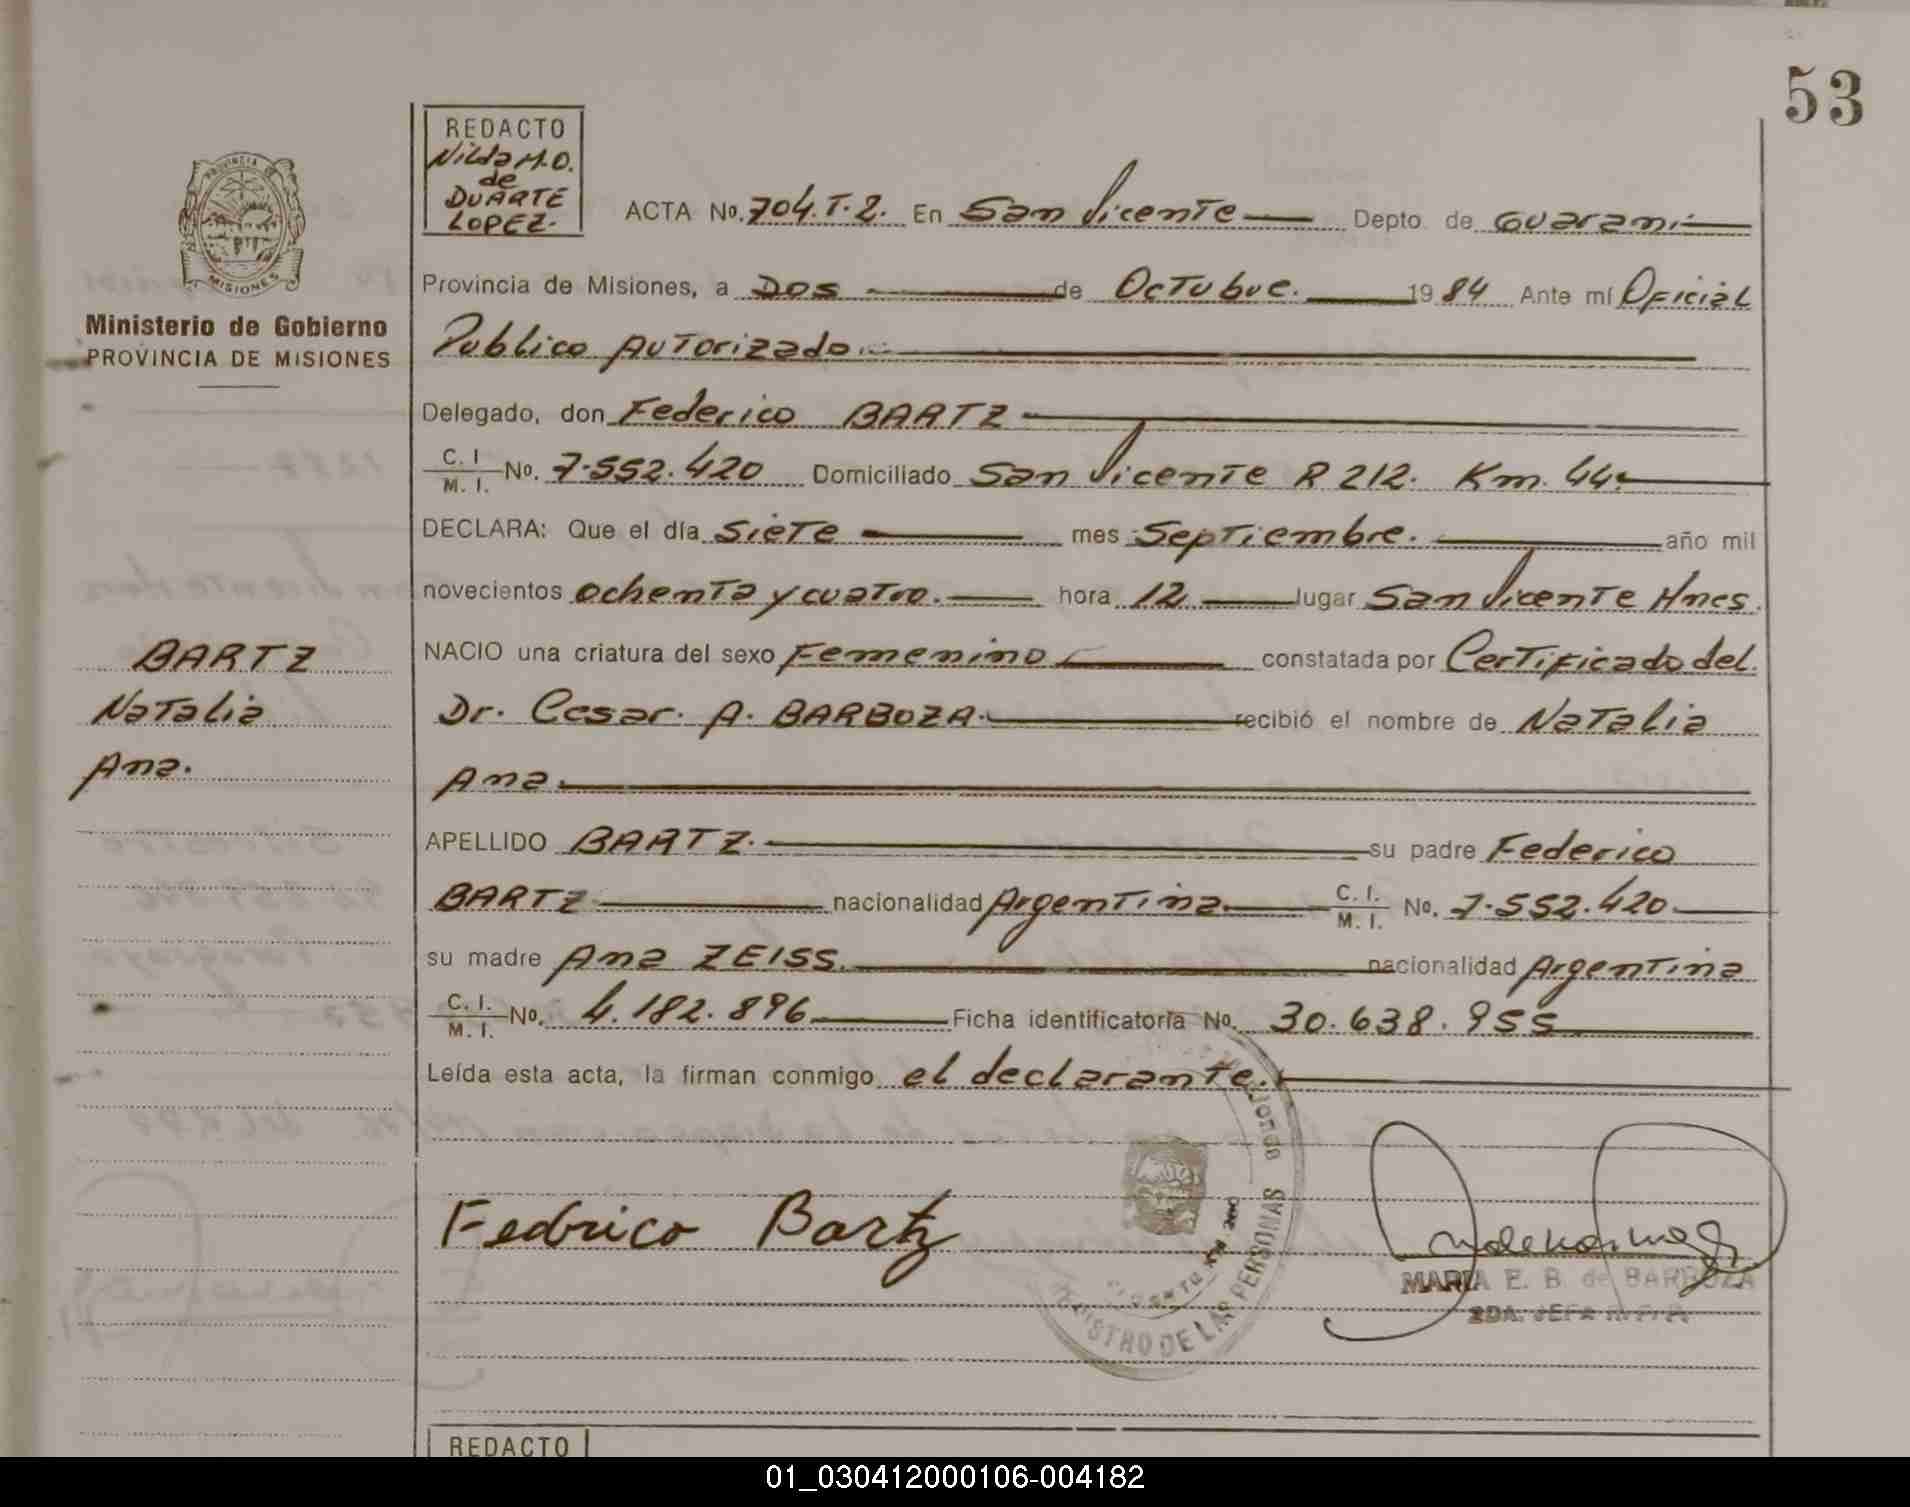 53
REDACTO
Nilda M.O.
de
DUARTE
LOPEZ.
PROVINCIA DE
MISIONES
Ministerio de Gobierno
PROVINCIA DE MISIONES
ACTA No. 704.T.2. En San Vicente Depto. de Guarani
Provincia de Misiones, a Dos de Octubre. 1984 Ante mí Oficial
Publico Autorizado.
Delegado, don Federico BARTZ
C. I. / M. I. No. 7.552.420 Domiciliado San Vicente R 212. Km. 44.
DECLARA: Que el día Siete mes Septiembre. año mil
novecientos ochenta y cuatro. hora 12 lugar San Vicente Mnes.
NACIO una criatura del sexo Femenino constatada por Certificado del
Dr. Cesar. A. BARBOZA. recibió el nombre de Natalia
Ana.
APELLIDO BARTZ. su padre Federico
BARTZ nacionalidad Argentina C. I. / M. I. No. 7.552.420
su madre Ana ZEISS. nacionalidad Argentina
C. I. / M. I. No. 4.182.896 Ficha identificatoria No. 30.638.955
Leída esta acta, la firman conmigo el declarante.
BARTZ
Natalia
Ana.
Fedrico Bartz
REGISTRO DE LAS PERSONAS
MARIA E. B. de BARBOZA
2DA. JEFA R.P.P.
REDACTO
01_030412000106-004182